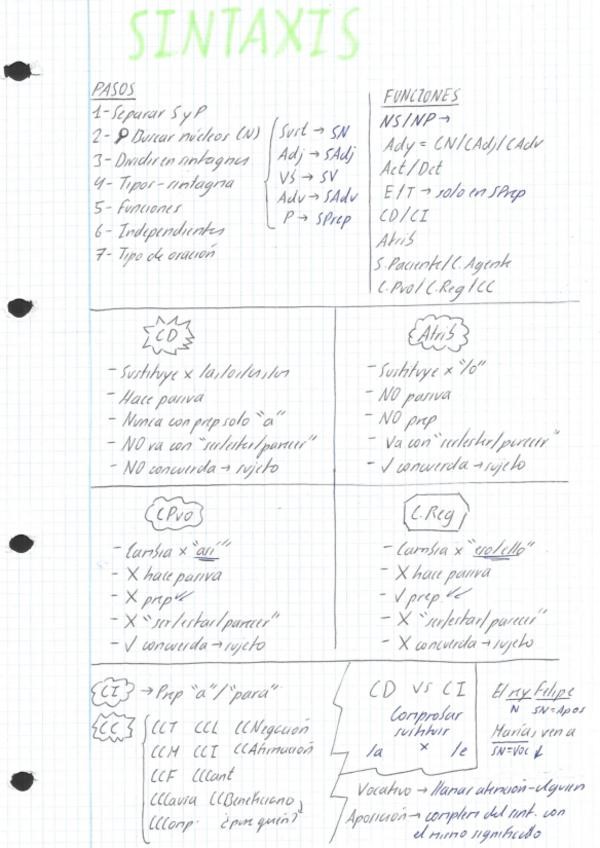 SINTAXIS
PASOS
1- Separar S y P
2- Buscar núcleos (N)
3- Dividir en sintagmas
4- Tipos - sintagma
5- Funciones
6- Independientes
7- Tipo de oración
Sust → SN
Adj → SAdj
VS → SV
Adv → SAdv
P → SPrep
FUNCIONES
NS/NP →
Ady = CN/CAdj/CAdv
Act/Dct
E/T → solo en SPrep
CD/CI
Atrib
S.Paciente/C.Agente
C.Pvo/C.Reg/CC
CD
- Sustituye x la/lo/las/los
- Hace pasiva
- Nunca con prep solo "a"
- NO va con "ser/estar/parecer"
- NO concuerda → sujeto
Atrib
- Sustituye x "lo"
- NO pasiva
- NO prep
- Va con "ser/estar/parecer"
- √ concuerda → sujeto
CPvo
- Cambia x "así"
- X hace pasiva
- X prep
- X "ser/estar/parecer"
- √ concuerda → sujeto
C.Reg
- Cambia x "eso/ello"
- X hace pasiva
- √ prep
- X "ser/estar/parecer"
- X concuerda → sujeto
CI → Prep "a"/"para"
CC
CCT CCL CCNegación
CCM CCI CCAfirmación
CCF CCCant
CCCausa CCBeneficiario
CCComp. ¿para quién?
CD VS CI
Comprobar
sustituir
la x le
El rey Felipe
N SN=Apos
María, ven a
SN=Voc
Vocativo → llamar atención - alguien
Aposición → complem del sint. con
el mismo significado